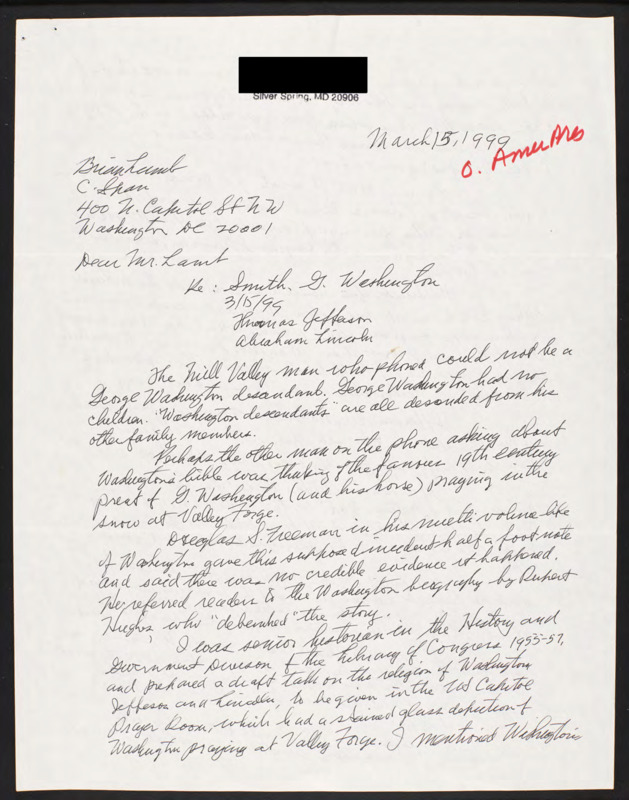 Silver Spring, MD 20906
March 15, 1999
O. Amer Pres
Brian Lamb
C-Span
400 N. Capitol St NW
Washington DC 20001
Dear Mr. Lamb
Re: Smith. G. Washington
3/15/99
Thomas Jefferson
Abraham Lincoln
The Mill Valley man who phoned could not be a
George Washington descendant. George Washington had no
children. "Washington descendants" are all descended from his
other family members.
Perhaps the other man on the phone asking about
Washington's bible was thinking of the famous 19th century
print of G. Washington (and his horse) praying in the
snow at Valley Forge.
Douglas S. Freeman in his multi volume life
of Washington gave this supposed incident half a foot note
and said there was no credible evidence it happened.
He referred readers to the Washington biography by Rupert
Hughes who "debunked" the story.
I was senior historian in the History and
Government Division of the Library of Congress 1955-57,
and prepared a draft talk on the religion of Washington
Jefferson and Lincoln, to be given in the US Capitol
Prayer Room, which had a stained glass depiction of
Washington praying at Valley Forge. I mentioned Washington's